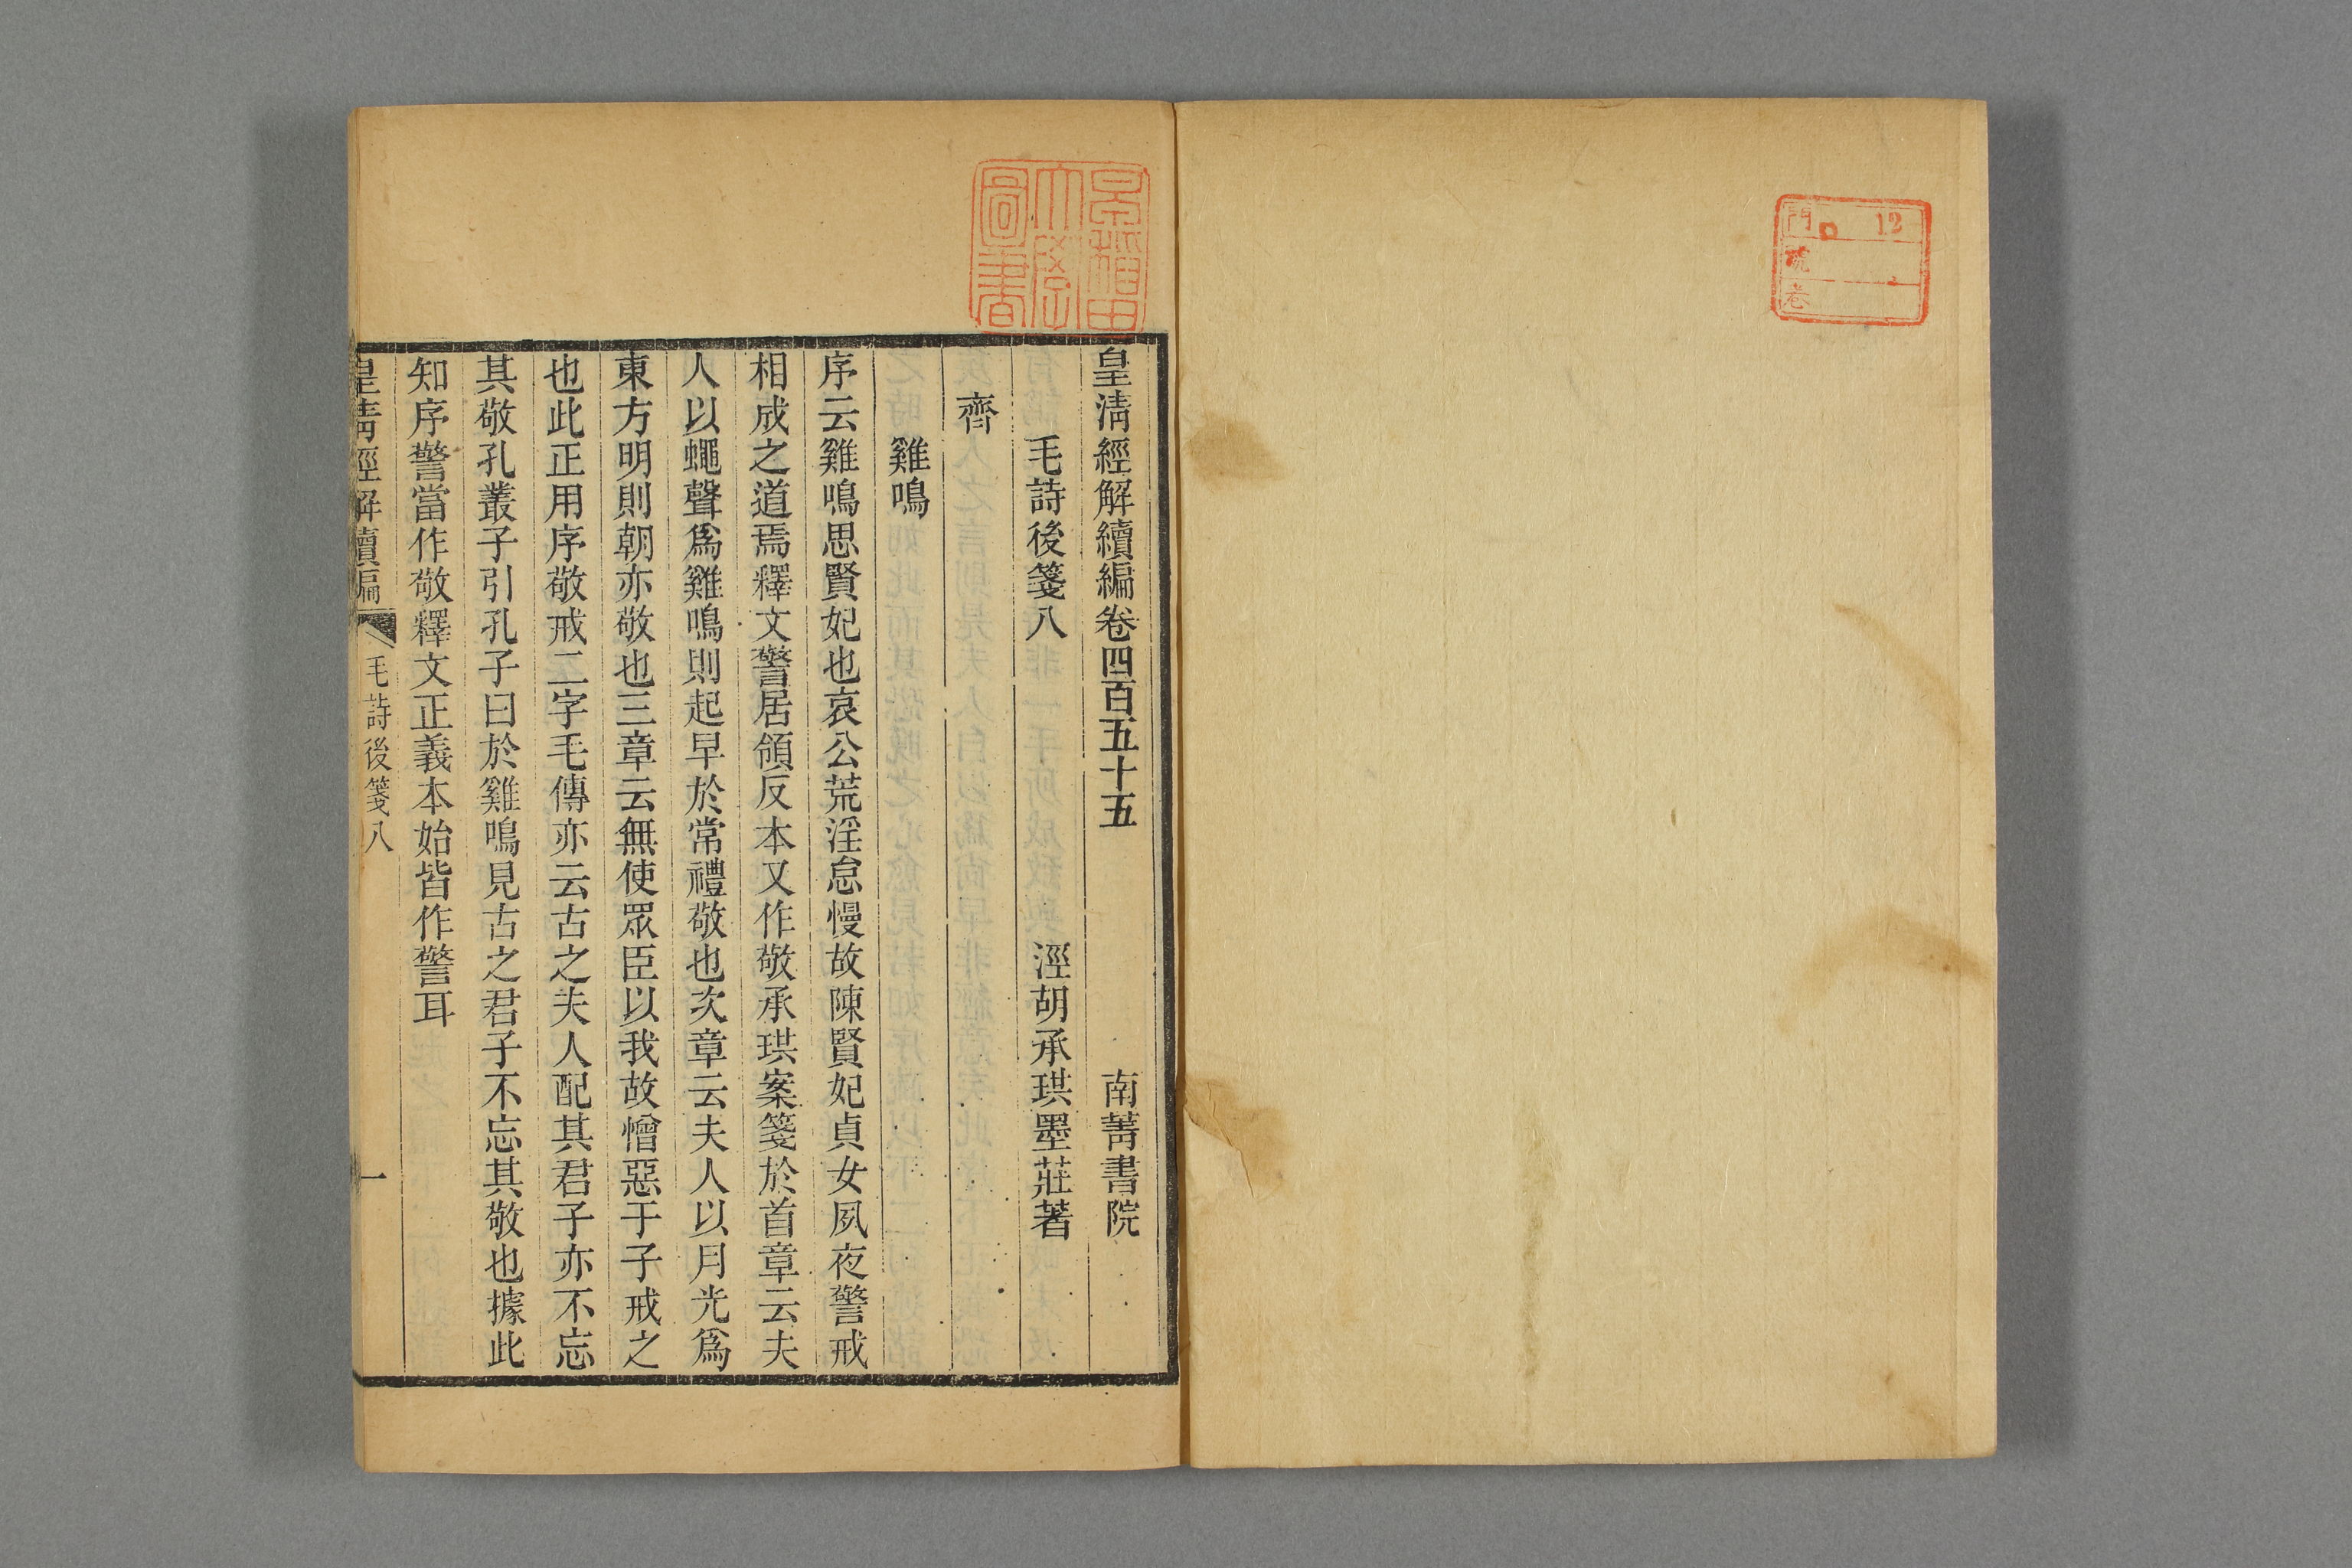 門 12
號
卷
早稻田
大學
圖書
皇淸經解續編卷四百五十五 南菁書院
毛詩後箋八 涇胡承珙墨莊著
齊
雞鳴
序云雞鳴思賢妃也哀公荒淫怠慢故陳賢妃貞女夙夜警戒
相成之道焉釋文警居領反本又作敬承珙案箋於首章云夫
人以蠅聲爲雞鳴則起早於常禮敬也次章云夫人以月光爲
東方明則朝亦敬也三章云無使眾臣以我故憎惡于子戒之
也此正用序敬戒二字毛傳亦云古之夫人配其君子亦不忘
其敬孔叢子引孔子曰於雞鳴見古之君子不忘其敬也據此
知序警當作敬釋文正義本始皆作警耳
皇淸經解續編 毛詩後箋八 一